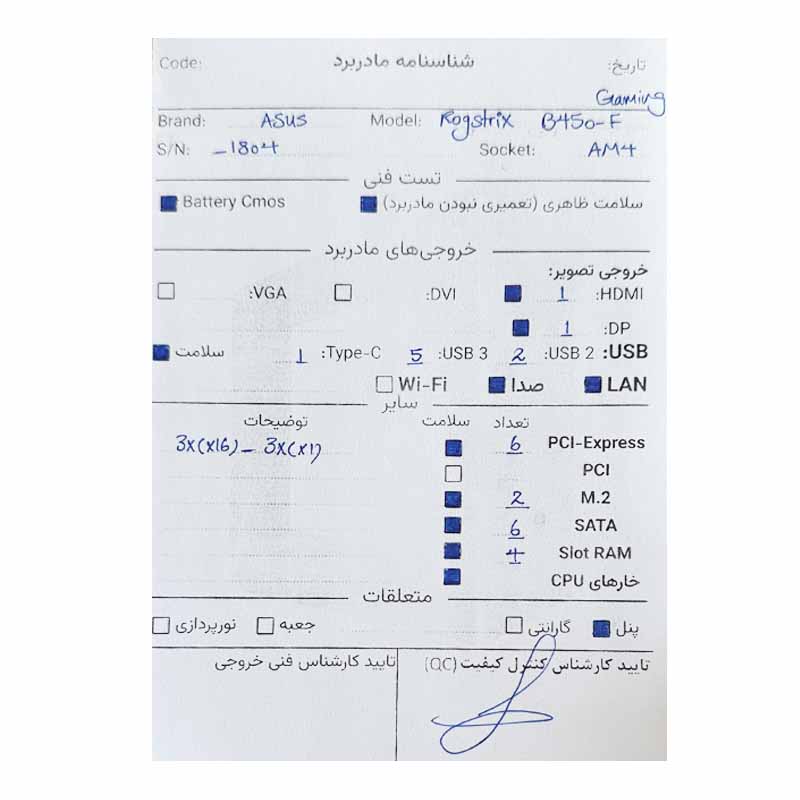 Code: شناسنامه مادربرد تاریخ:
Gaming
Brand: ASUS Model: Rogstrix B450-F
S/N: _1804 Socket: AM4
تست فنی
سلامت ظاهری (تعمیری نبودن مادربرد) Battery Cmos
خروجی‌های مادربرد
خروجی تصویر:
HDMI: 1 DVI: VGA:
DP: 1
USB: USB 2: 2 USB 3: 5 Type-C: 1 سلامت
LAN صدا Wi-Fi
سایر
تعداد سلامت توضیحات
PCI-Express 6 3x(x16) - 3x(x1)
PCI
M.2 2
SATA 6
Slot RAM 4
خارهای CPU
متعلقات
پنل گارانتی جعبه نورپردازی
تایید کارشناس کنترل کیفیت (QC) تایید کارشناس فنی خروجی